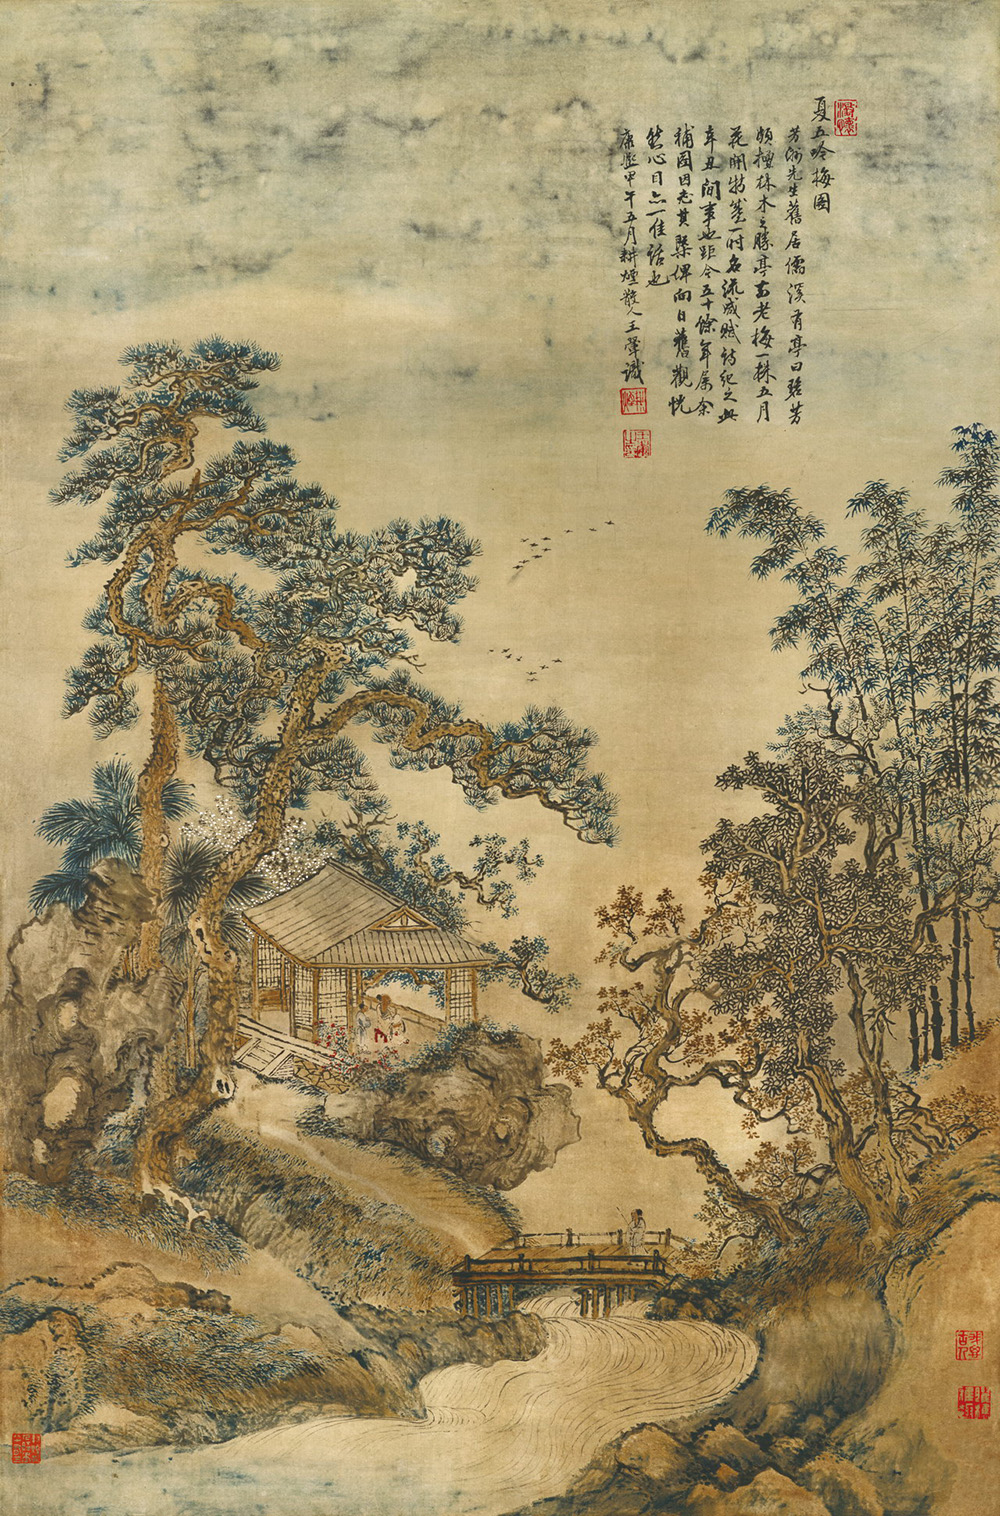 夏五吟梅图
芳洲先生舊居儒溪有亭曰碧芳
頗擅林木之勝亭前老梅一株五月
花開特盛一时名流咸赋诗纪之此
辛丑间事也距今五十馀年属余
補图因志其槩俾向日舊觀恍
然心目亦一佳话也
康熙甲午五月耕煙散人王翬識